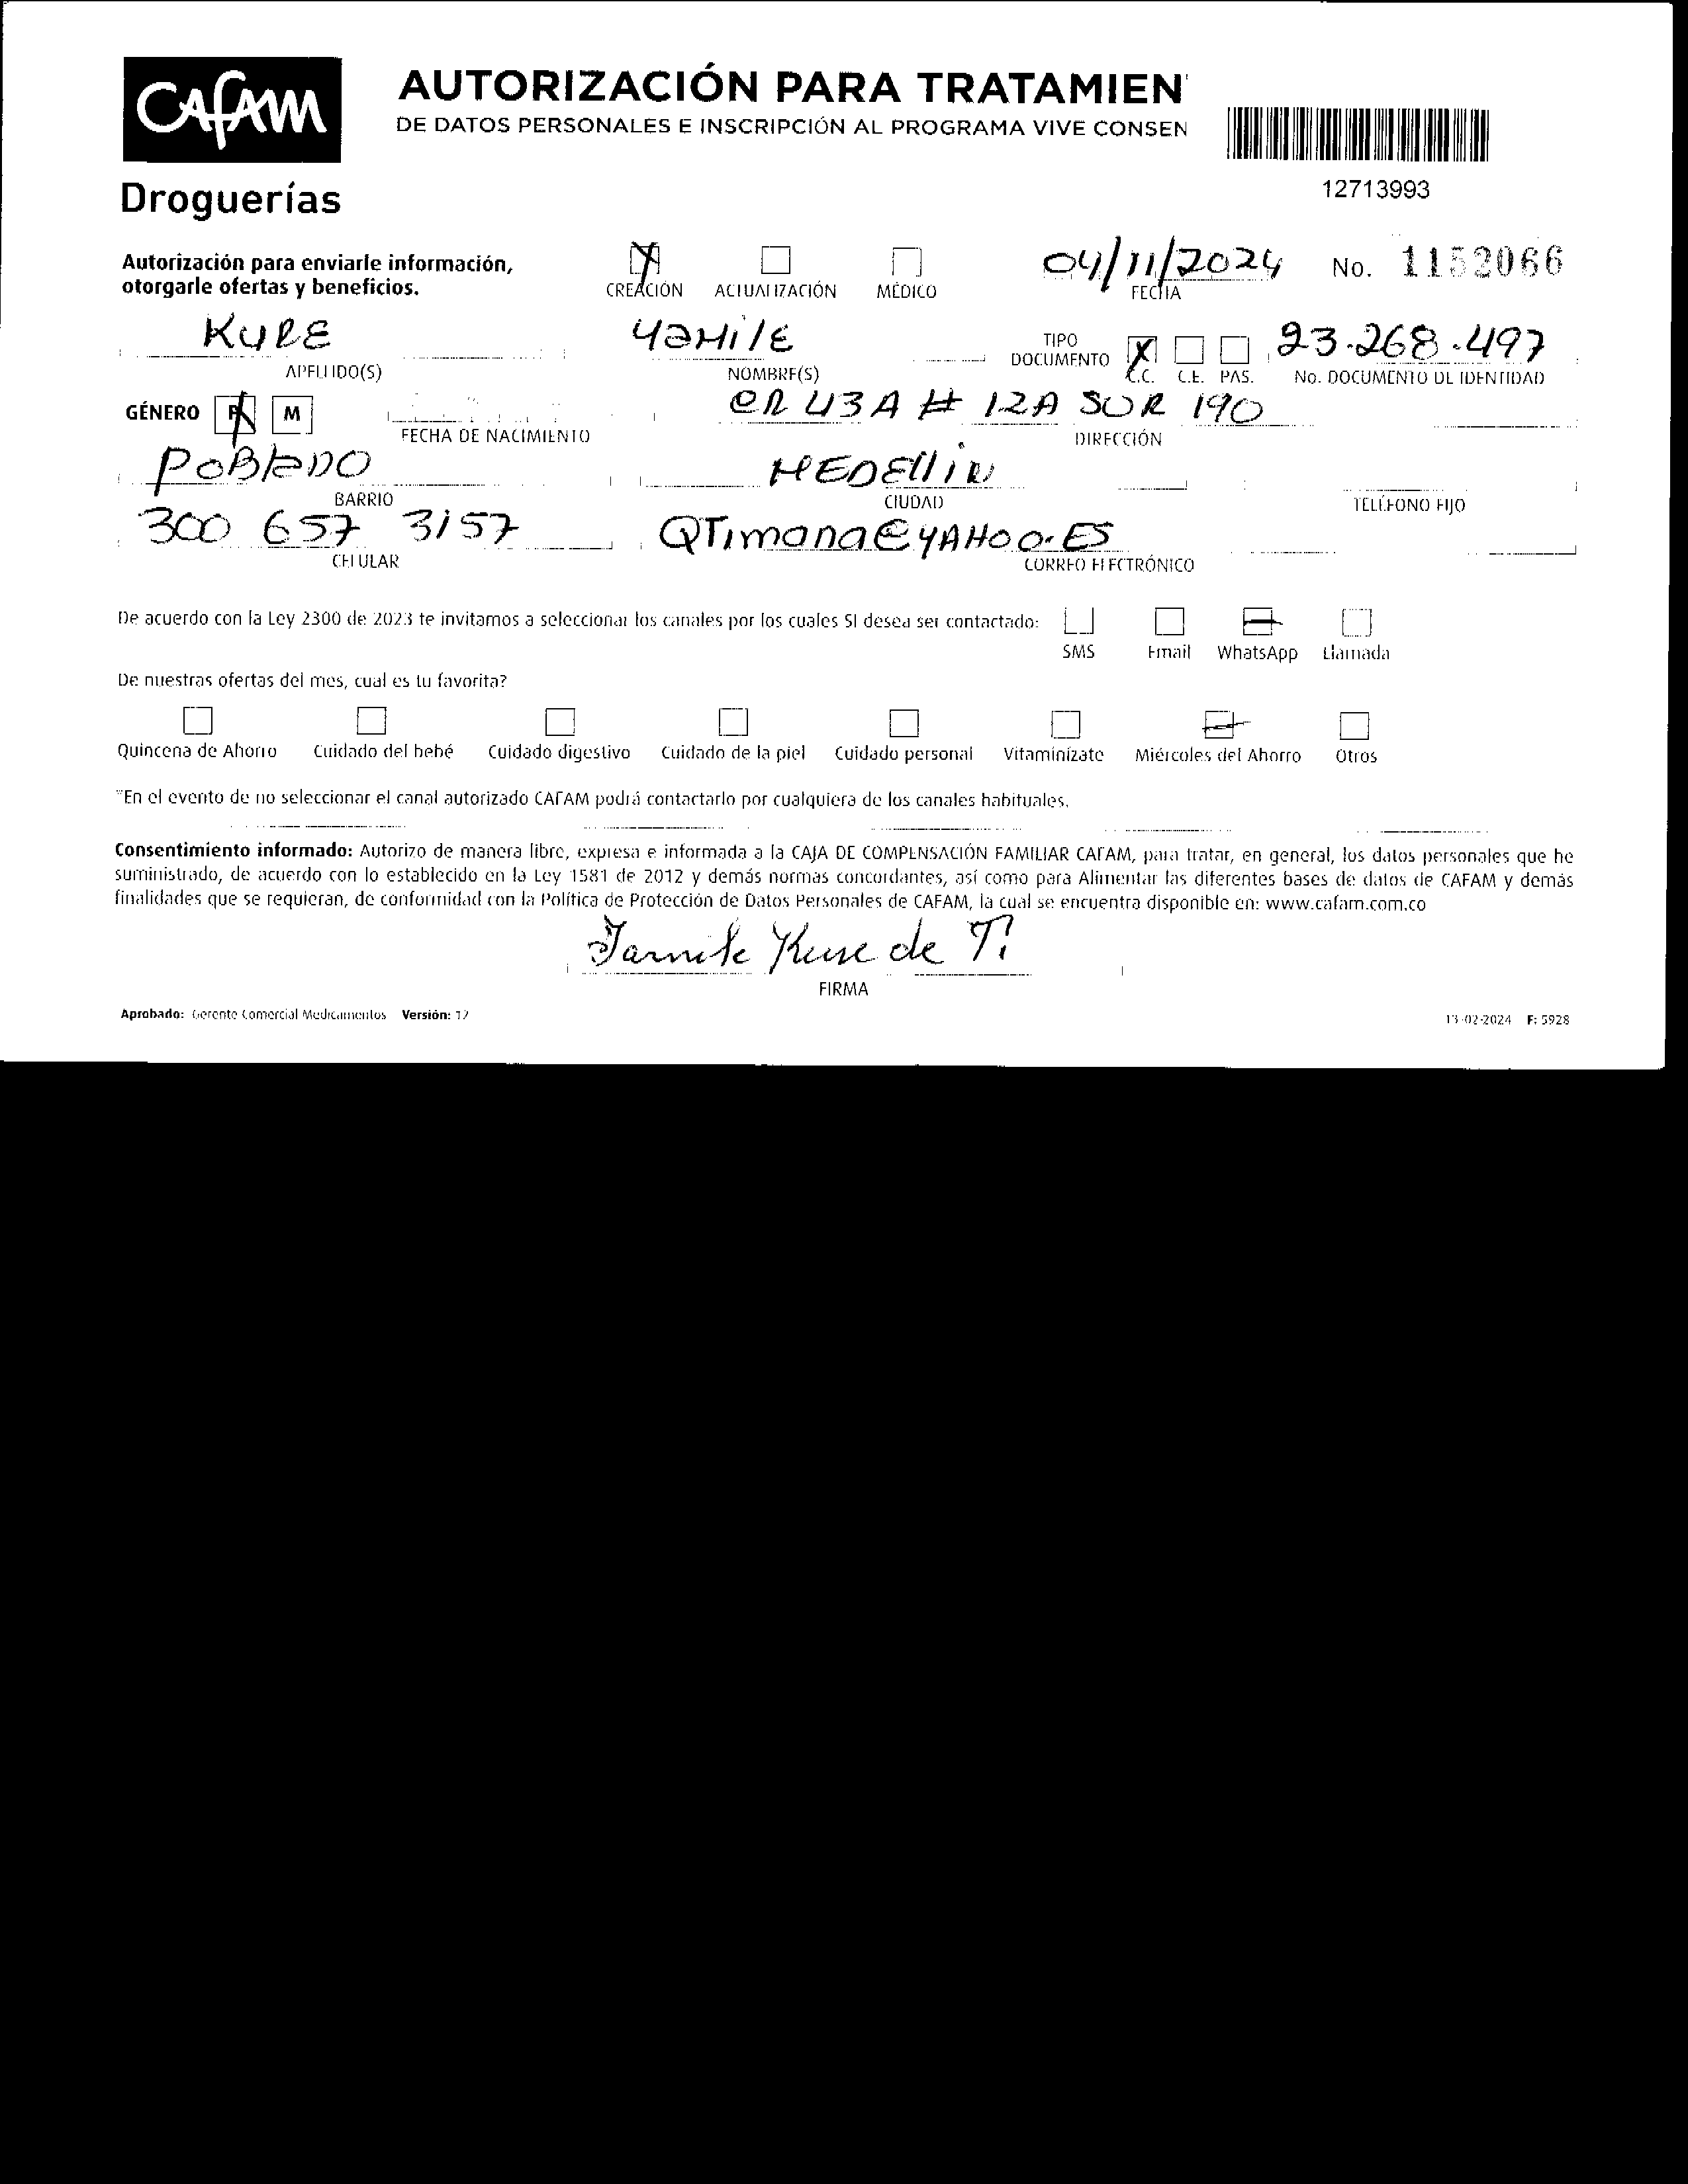 CAFAM
AUTORIZACIÓN PARA TRATAMIEN
DE DATOS PERSONALES E INSCRIPCIÓN AL PROGRAMA VIVE CONSEN
12713993
Droguerías
Autorización para enviarle información,
otorgarle ofertas y beneficios.
CREACIÓN ACTUALIZACIÓN MÉDICO
04/11/2024
FECHA
No. 1152066
KURE YAMILE
TIPO DOCUMENTO X 23.268.497
APELLIDO(S) NOMBRE(S) C.C. C.E. PAS. No. DOCUMENTO DE IDENTIDAD
GÉNERO F M CR 43A # 12A SUR 190
FECHA DE NACIMIENTO DIRECCIÓN
POBLADO MEDELLIN
BARRIO CIUDAD TELÉFONO FIJO
300 657 3157 QTimana@YAHOO.ES
CELULAR CORREO ELECTRÓNICO
De acuerdo con la Ley 2300 de 2023 te invitamos a seleccionar los canales por los cuales SI desea ser contactado:
SMS Email WhatsApp Llamada
De nuestras ofertas del mes, cual es tu favorita?
Quincena de Ahorro Cuidado del bebé Cuidado digestivo Cuidado de la piel Cuidado personal Vitaminízate Miércoles del Ahorro Otros
*En el evento de no seleccionar el canal autorizado CAFAM podrá contactarlo por cualquiera de los canales habituales.
Consentimiento informado: Autorizo de manera libre, expresa e informada a la CAJA DE COMPENSACIÓN FAMILIAR CAFAM, para tratar, en general, los datos personales que he
suministrado, de acuerdo con lo establecido en la Ley 1581 de 2012 y demás normas concordantes, así como para Alimentar las diferentes bases de datos de CAFAM y demás
finalidades que se requieran, de conformidad con la Política de Protección de Datos Personales de CAFAM, la cual se encuentra disponible en: www.cafam.com.co
Yamile Kure de T.
FIRMA
Aprobado: Gerente Comercial Medicamentos Versión: 12
13-02-2024 F: 5928